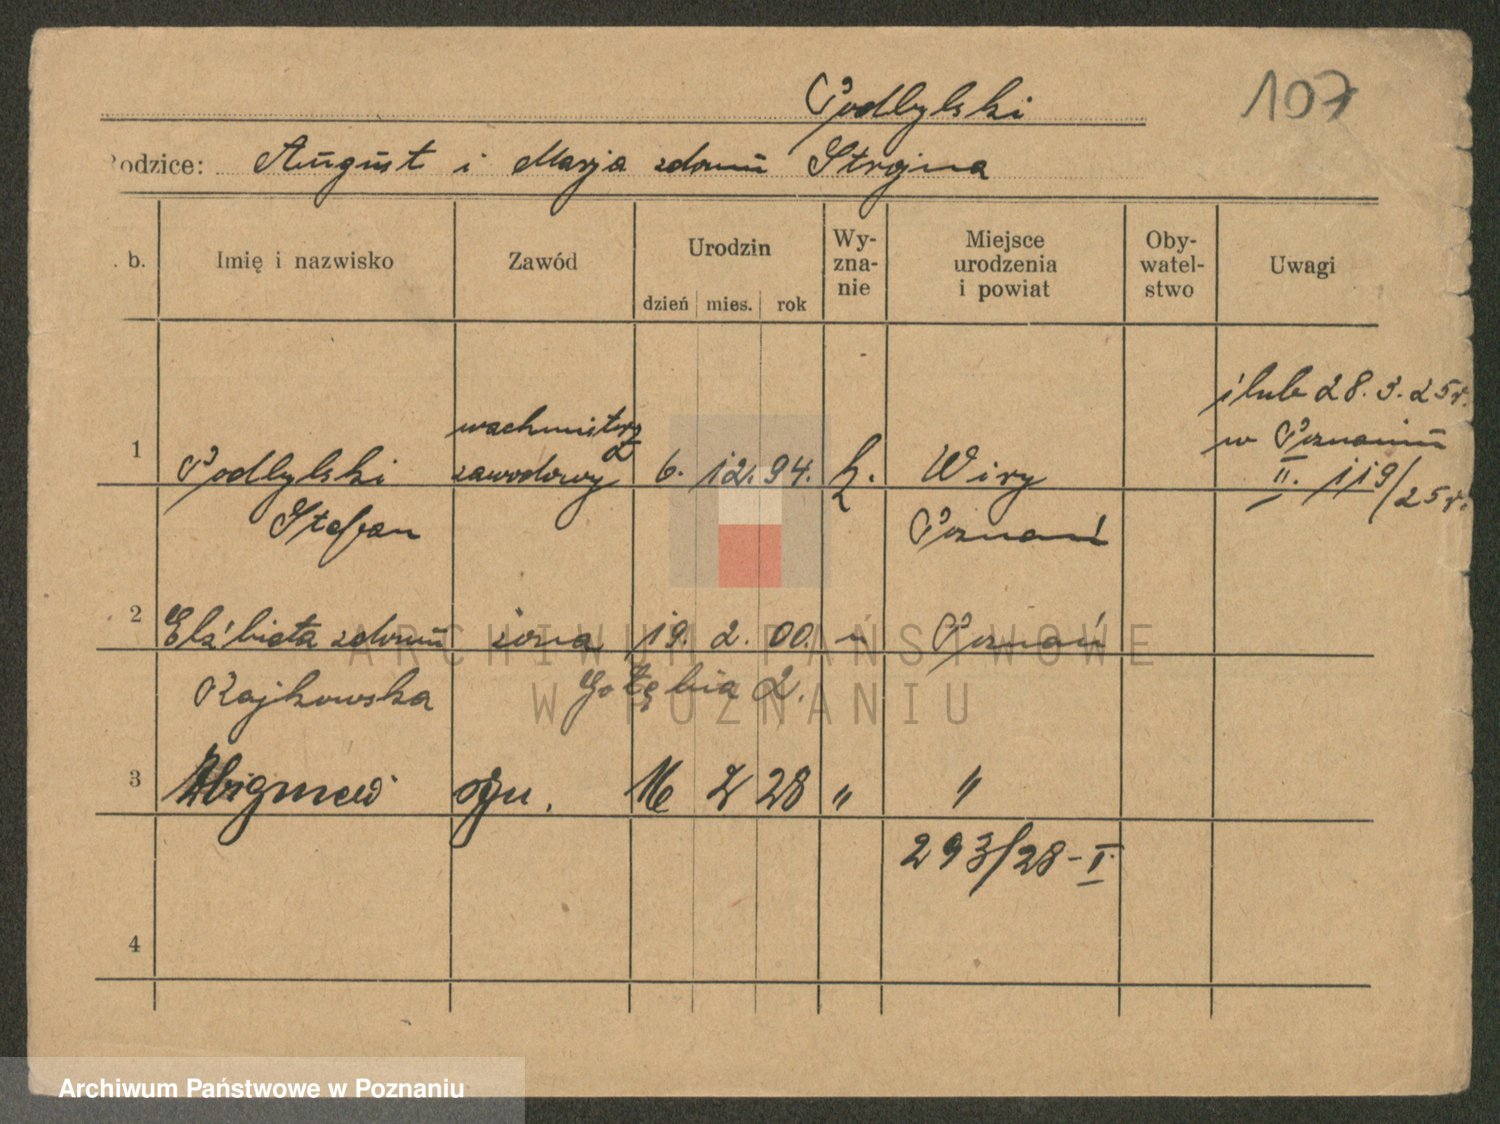 Podbylski
107
Rodzice: August i Marja zdomu Strojna
. b. Imię i nazwisko Zawód Urodzin dzień mies. rok Wy-zna-nie Miejsce urodzenia i powiat Oby-watel-stwo Uwagi
ślub 28.3.25r.
wachmistrz w Poznaniu
1 Podbylski zawodowy 6. 12. 94. k. Wiry II. 119/25r.
Stefan Poznań
2 Elżbieta zdomu żona 19. 2. 00. " Poznań
Rajkowska Gołębia 2.
3 Zbigniew syn. 16 2 28 " "
293/28-I
4
ARCHIWUM PAŃSTWOWE
W POZNANIU
Archiwum Państwowe w Poznaniu